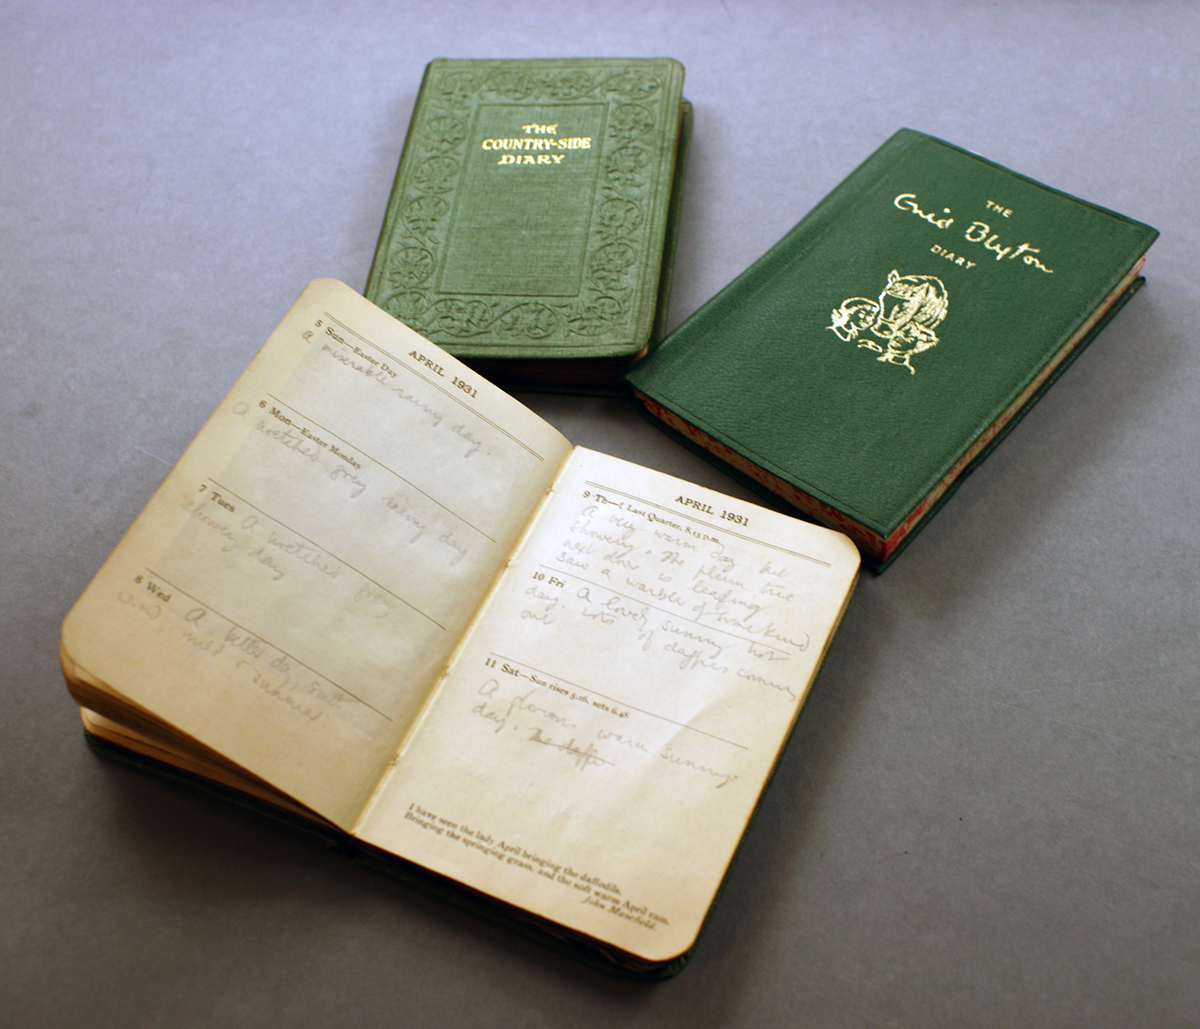 THE
COUNTRY-SIDE
DIARY
THE
Enid Blyton
DIARY
APRIL 1931
5 Sun—Easter Day
A miserable rainy day.
6 Mon—Easter Monday
A wretched grey rainy day
7 Tues A wretched grey
showery day
8 Wed A better day, soft
wind, mild & sunny
APRIL 1931
9 Th—☾ Last Quarter, 8.15 p.m.
A very warm day but
showery. The plum tree
next door is leafing
saw a warbler of some kind
10 Fri A lovely sunny hot
day. Lots of daffies coming
out
11 Sat—Sun rises 5.16, sets 6.48
A glorious warm sunny
day. The daffies
I have seen the lady April bringing the daffodils,
Bringing the springing grass, and the soft warm April rain.
John Masefield.